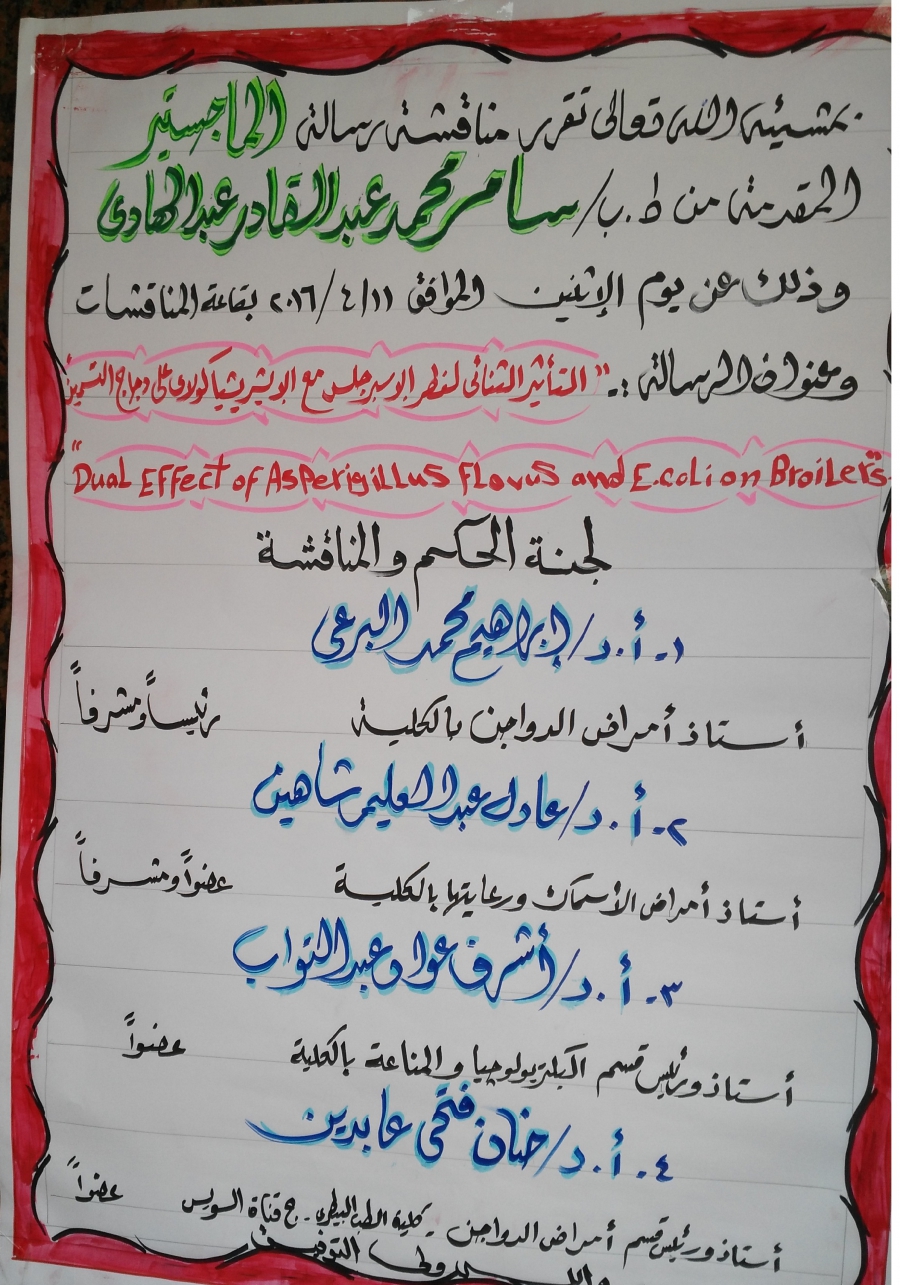 بمشيئة الله تعالى تقرر مناقشة رسالة الماجستير
المقدمة من ط.ب/سامر محمد عبد القادر عبد الهادى
وذلك عن يوم الإثنين الموافق ٢٠١٦/٤/١١ بقاعة المناقشات
وعنوان الرسالة :- "التأثير الثنائى لفطر الاسبرجلس مع الايشريشيا كولاى على دجاج التسمين
"Dual Effect of Asperigillus Flavus and E.coli on Broilers"
لجنة الحكم والمناقشة
١- أ.د/إبراهيم محمد البرعى
أستاذ أمراض الدواجن بالكلية رئيساً ومشرفاً
٢- أ.د/عادل عبد العليم شاهين
أستاذ أمراض الأسماك ورعايتها بالكلية عضواً ومشرفاً
٣- أ.د/أشرف عواد عبد التواب
أستاذ ورئيس قسم البكتريولوجيا والمناعة بالكلية عضواً
٤- أ.د/حنان فتحى عابدين
أستاذ ورئيس قسم أمراض الدواجن - كلية الطب البيطرى - ج قناة السويس عضواً
والله ولى التوفيق